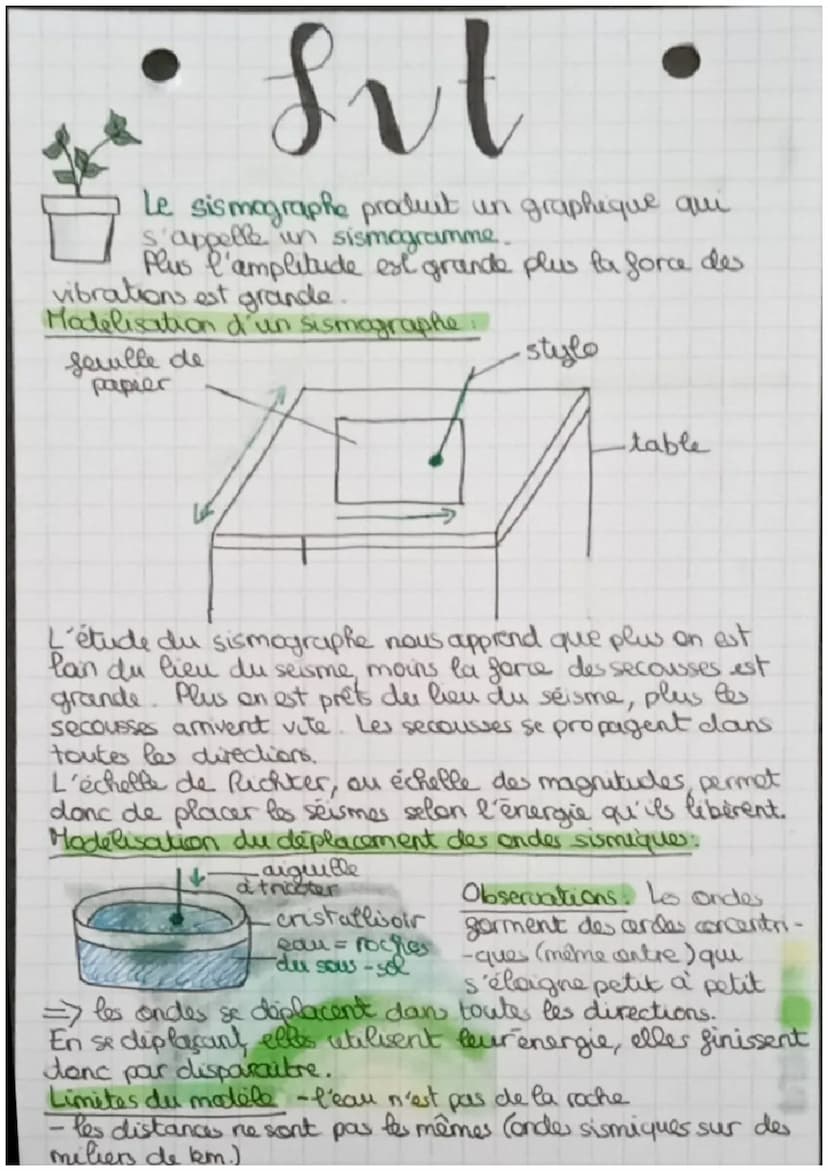 Svt
Le sismographe produit un graphique qui
s'appelle un sismogramme.
Plus l'amplitude est grande plus la force des
vibrations est grande.
Modélisation d'un sismographe :
feuille de
papier
stylo
table
L'étude du sismographe nous apprend que plus on est
loin du lieu du seisme, moins la force des secousses est
grande. Plus on est prêts du lieu du séisme, plus les
secousses arrivent vite. Les secousses se propagent dans
toutes les directions.
L'échelle de Richter, ou échelle des magnitudes, permet
donc de placer les séismes selon l'énergie qu'ils libèrent.
Modélisation du déplacement des ondes sismiques :
aiguille
à tricoter
cristallisoir
eau = roches
du sous-sol
Observations : Les ondes
forment des cercles concentri-
-ques (même centre) qui
s'éloigne petit à petit
=> les ondes se déplacent dans toutes les directions.
En se déplaçant, elles utilisent leur énergie, elles finissent
donc par disparaître.
Limites du modèle - l'eau n'est pas de la roche
- les distances ne sont pas les mêmes (ondes sismiques sur des
miliers de km.)